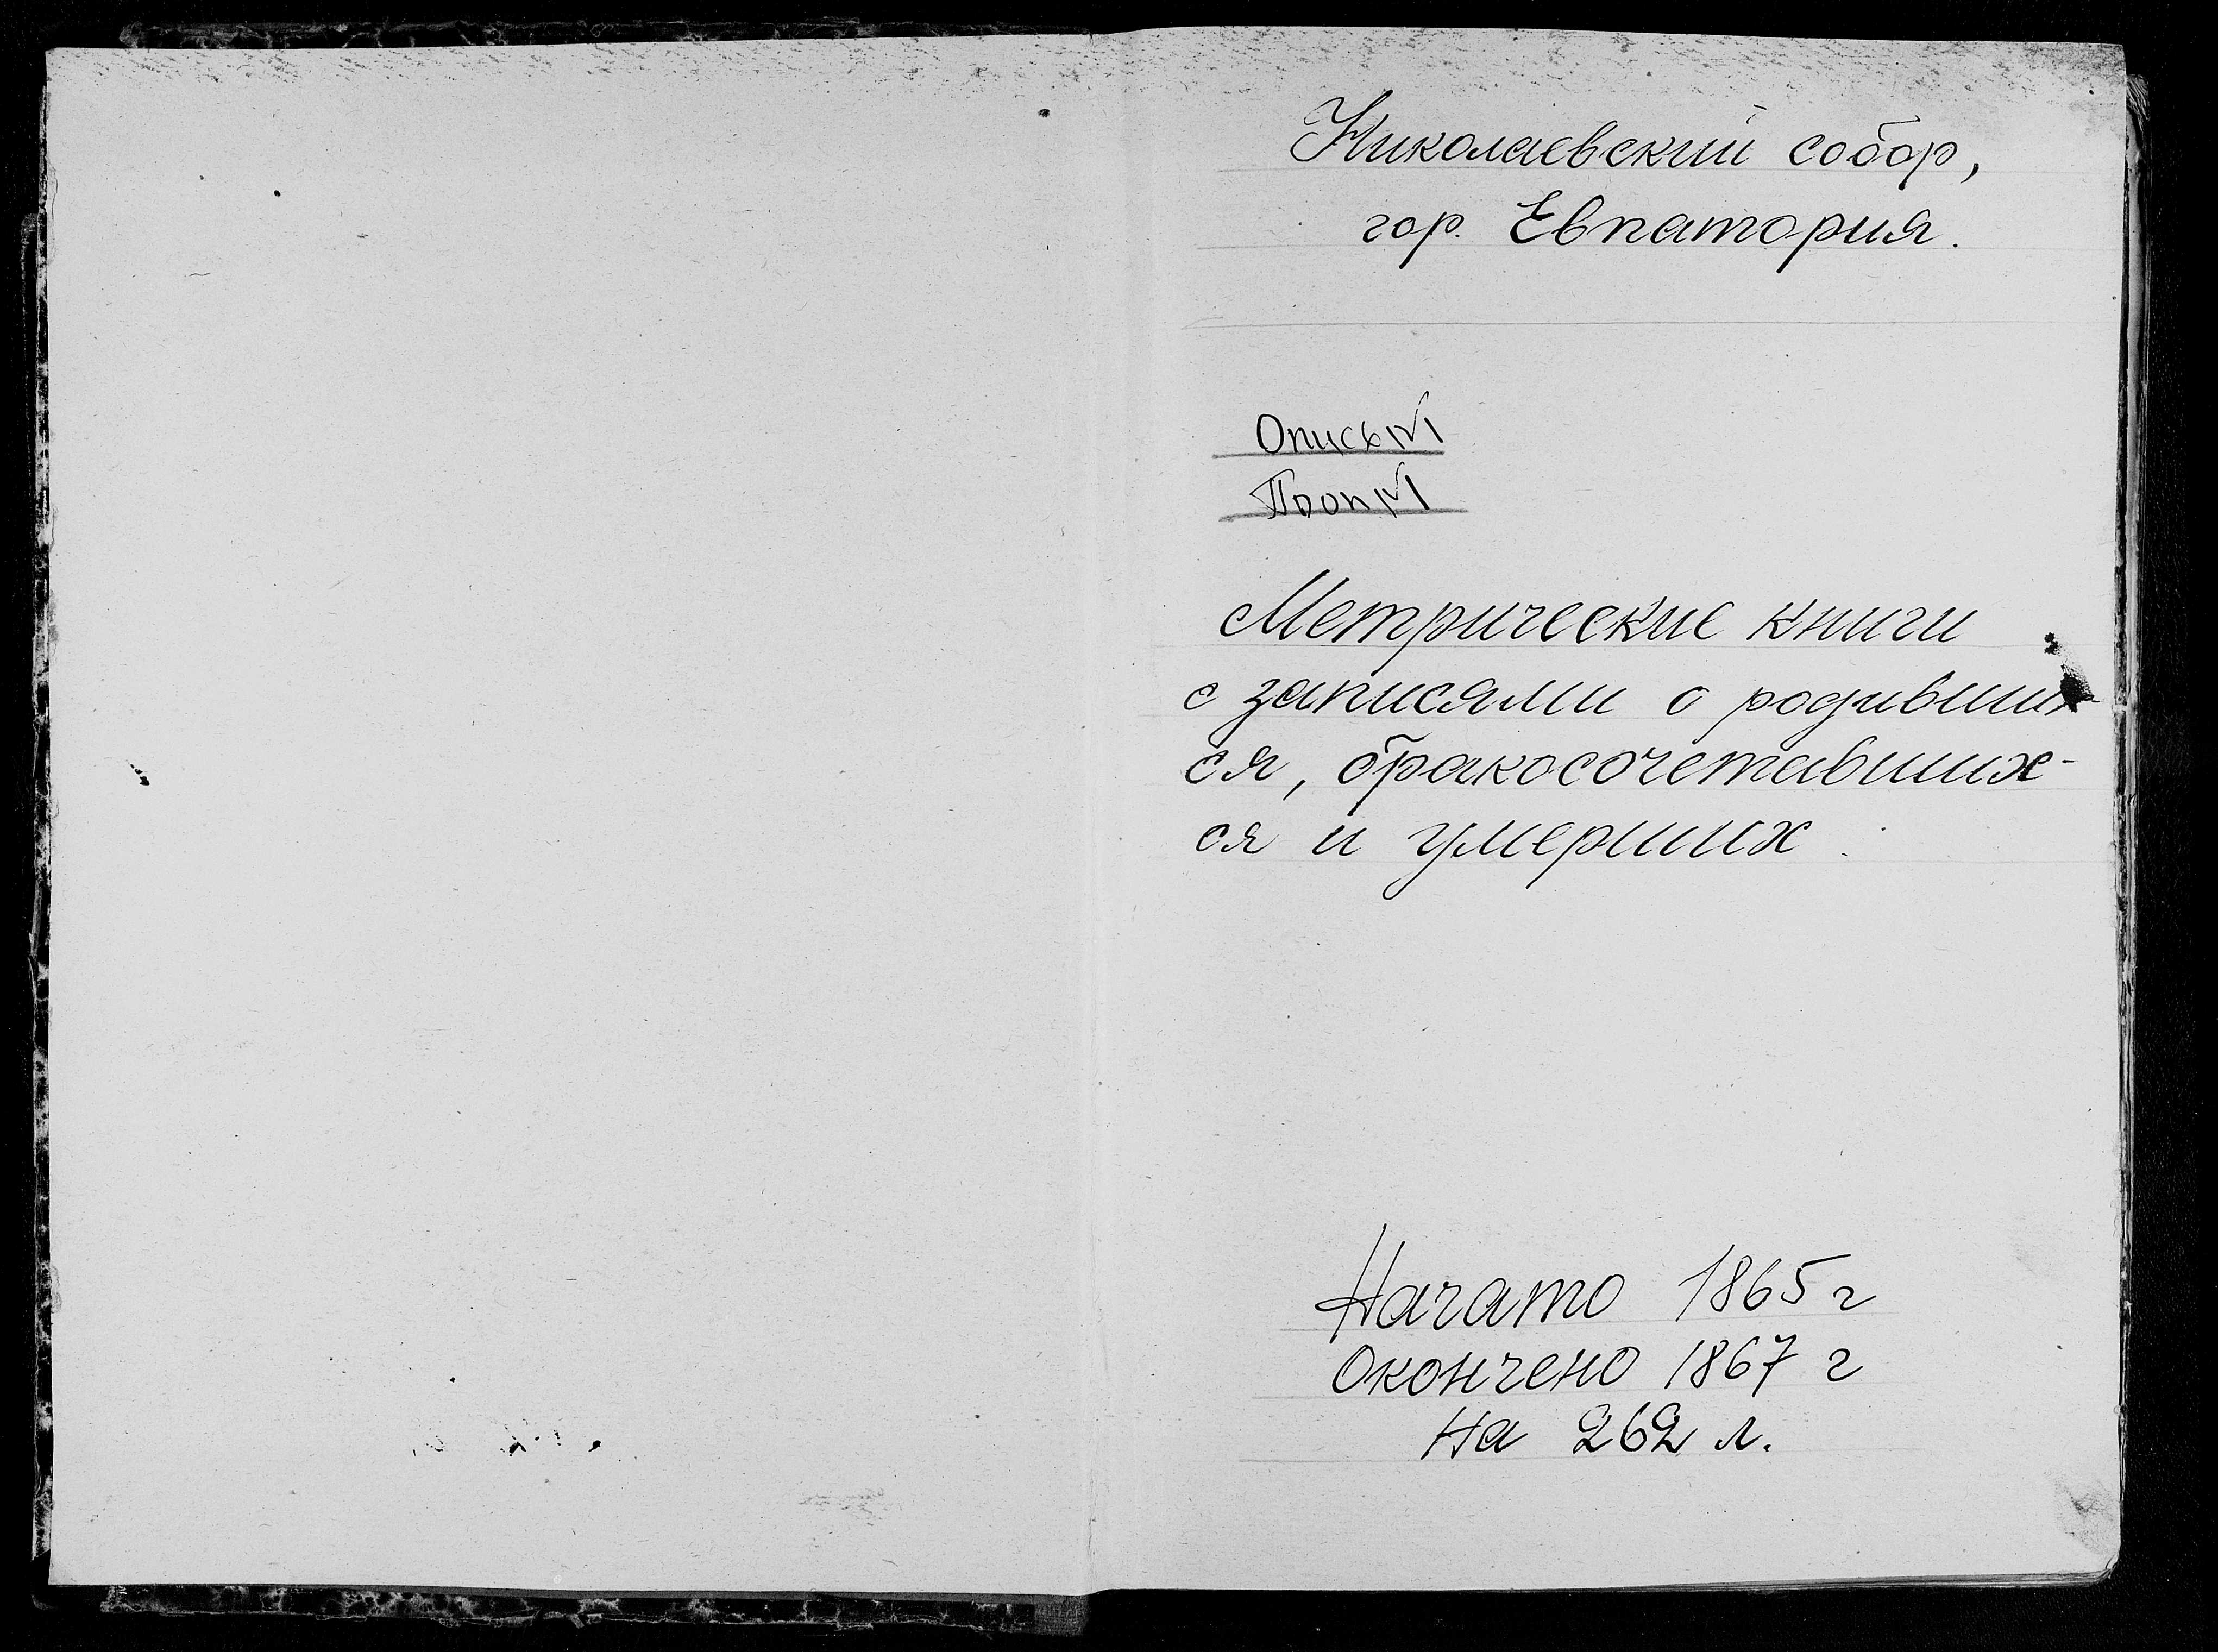 Николаевский собор,
гор. Евпатория.
Опись №1
Метрические книги
с записями о родивших-
ся, бракосочетавших-
ся и умерших.
Начато 1865 г
Окончено 1867 г
на 262 л.